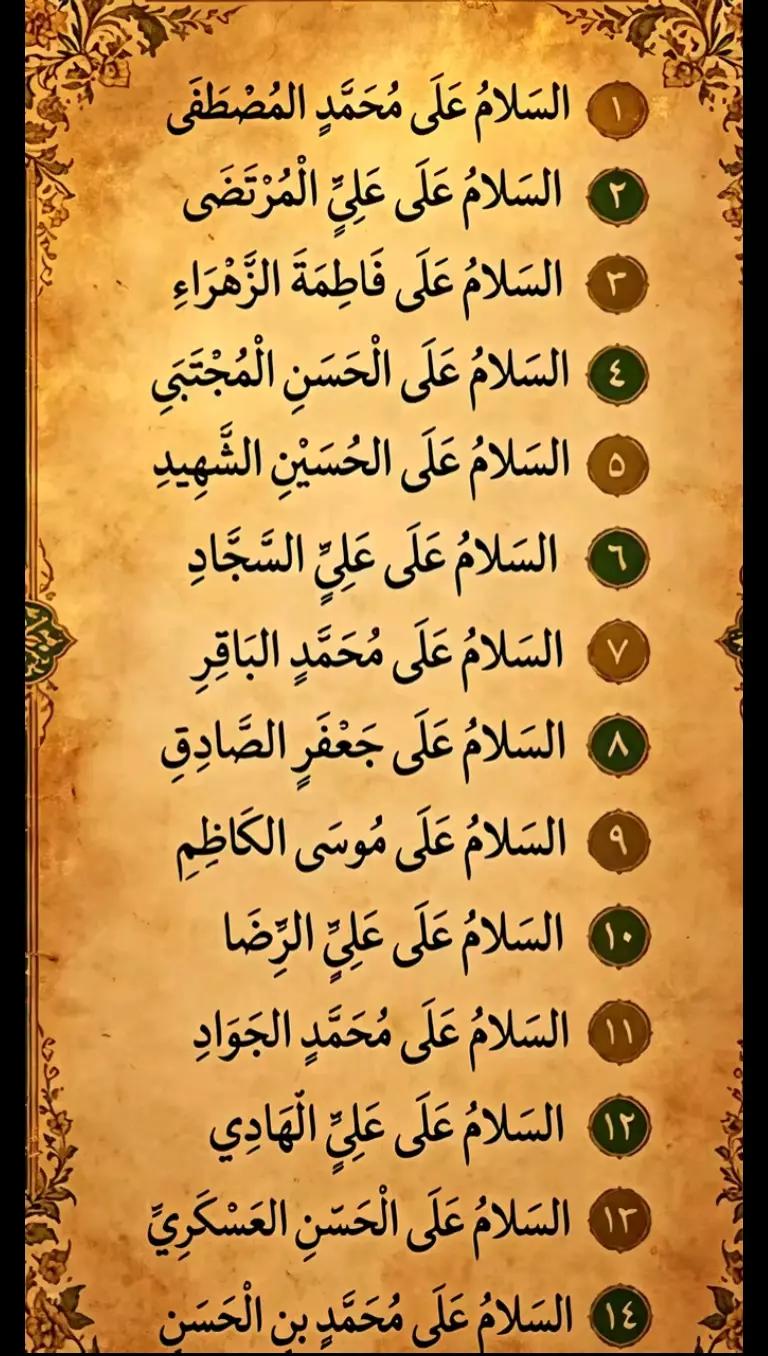 ١ السَلامُ عَلَى مُحَمَّدٍ المُصْطَفَى
٢ السَلامُ عَلَى عَلِيٍّ الْمُرْتَضَى
٣ السَلامُ عَلَى فَاطِمَةَ الزَّهْرَاءِ
٤ السَلامُ عَلَى الْحَسَنِ الْمُجْتَبَىِ
٥ السَلامُ عَلَى الحُسَيْنِ الشَّهِيدِ
٦ السَلامُ عَلَى عَلِيٍّ السَّجَّادِ
٧ السَلامُ عَلَى مُحَمَّدٍ البَاقِرِ
٨ السَلامُ عَلَى جَعْفَرٍ الصَّادِقِ
٩ السَلامُ عَلَى مُوسَى الكَاظِمِ
١٠ السَلامُ عَلَى عَلِيٍّ الرِّضَا
١١ السَلامُ عَلَى مُحَمَّدٍ الجَوَادِ
١٢ السَلامُ عَلَى عَلِيٍّ الْهَادِي
١٣ السَلامُ عَلَى الْحَسّنِ العَسْكَرِيِّ
١٤ السَلامُ عَلَى مُحَمَّدٍ بنِ الْحَسَنِ